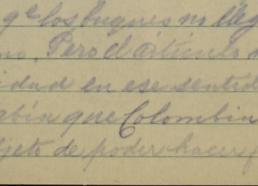 qe los buques no lleg
no. Pero el artículo
idad en ese sentid
abía que Colombia
jeto de poder hacer